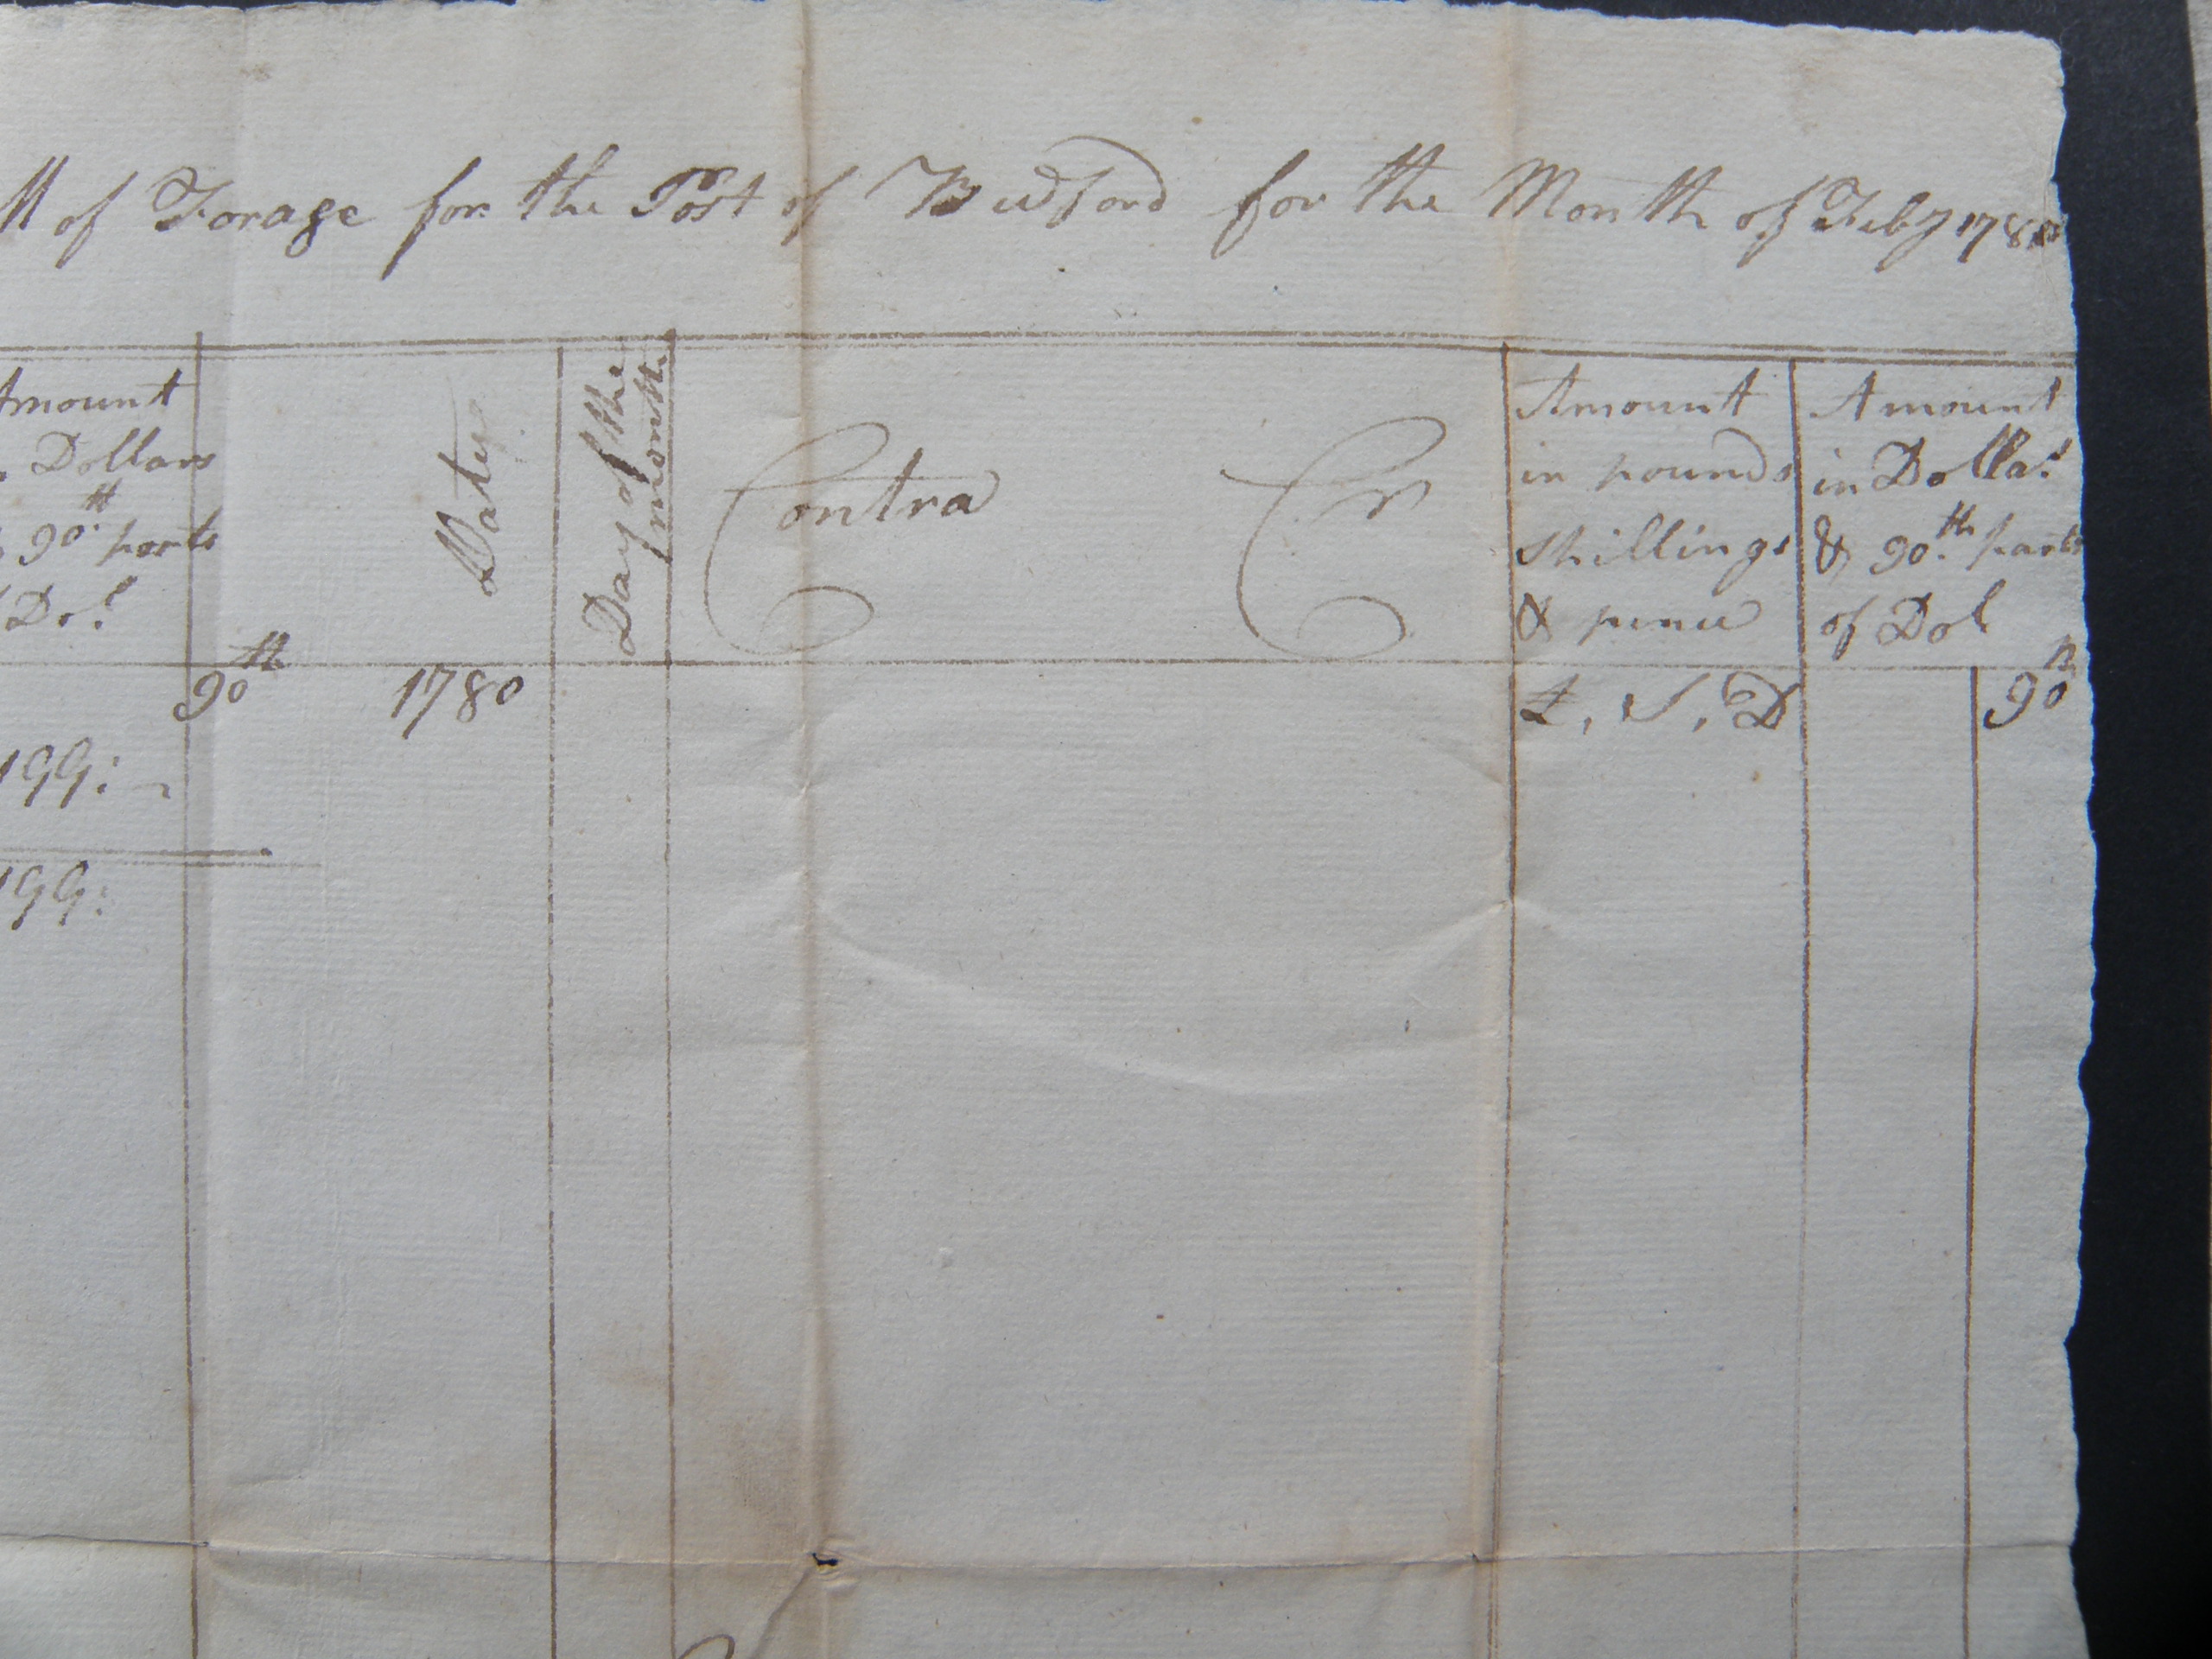 of Forage for the Post of Bedford for the Month of Feby 1780
Amount
Dollars
90th parts
Dol
90th
199:
199:
Date
1780
Day of the
month
Contra Cr
Amount
in pounds
Shillings
& pence
£, S, D
Amount
in Dollas
& 90th parts
of Dol
90